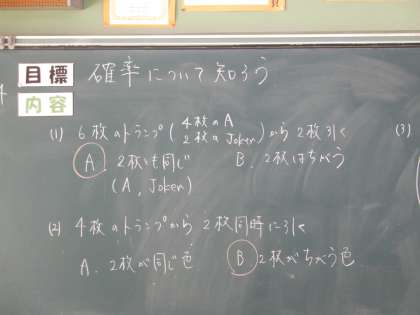 目標 確率について知ろう
内容
(1) 6枚のトランプ(4枚のA 2枚のJoker)から2枚引く
A. 2枚とも同じ B. 2枚はちがう
(A, Joker)
(2) 4枚のトランプから 2枚同時に引く
A. 2枚が同じ色 B 2枚がちがう色
(3)